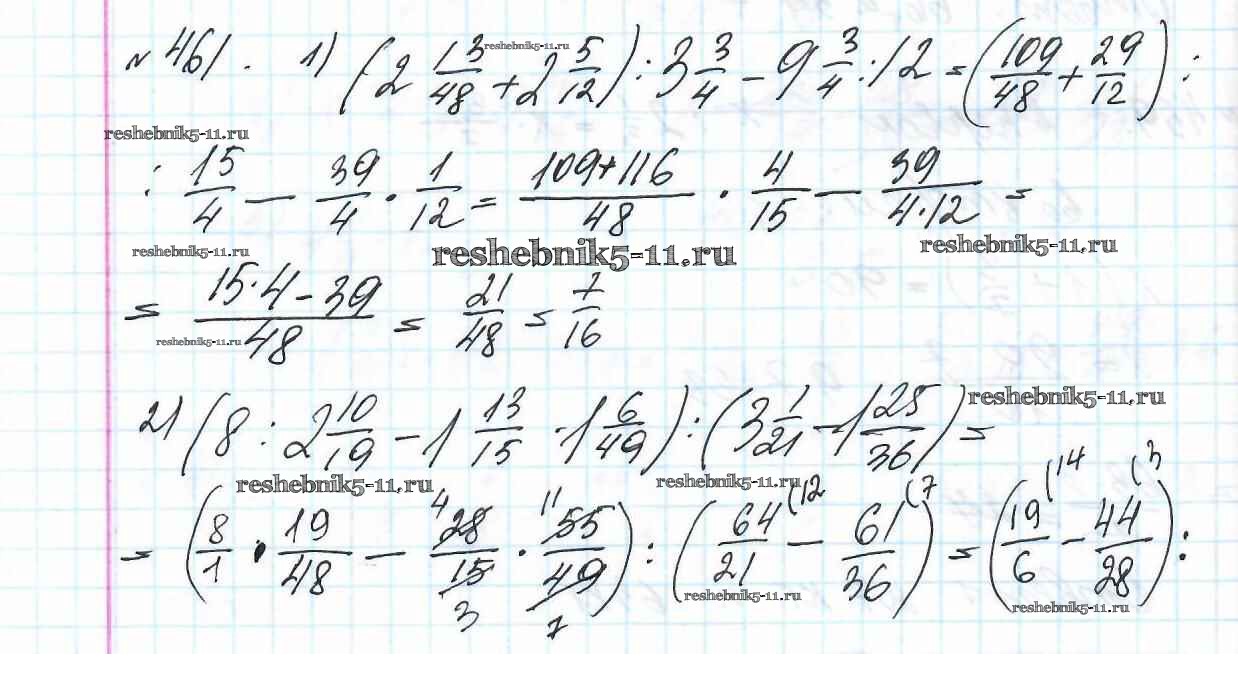 № 461. 1) (2 13/48 + 2 5/12) : 3 3/4 - 9 3/4 : 12 = (109/48 + 29/12) :
reshebnik5-11.ru
reshebnik5-11.ru
: 15/4 - 39/4 · 1/12 = (109+116)/48 · 4/15 - 39/(4·12) =
reshebnik5-11.ru reshebnik5-11.ru reshebnik5-11.ru
= (15·4-39)/48 = 21/48 = 7/16
reshebnik5-11.ru
2) (8 : 2 10/19 - 1 13/15 · 1 6/49) : (3 1/21 - 1 25/36) =
reshebnik5-11.ru
reshebnik5-11.ru reshebnik5-11.ru
= (8/1 · 19/48 - 4 28/15 3 · 11 55/49 7) : (64/21 (12 - 61/36 (7) = (19/6 (14 - 44/28 (3) :
reshebnik5-11.ru reshebnik5-11.ru